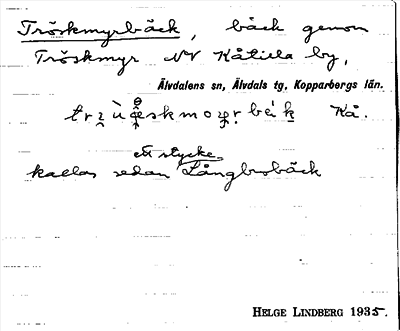 Tröskmyrbäck, bäck genom
Tröskmyr NV Kåtilla by,
Älvdalens sn, Älvdals tg, Kopparbergs län.
Kå.
ett stycke
kallas sedan Långbrobäck
HELGE LINDBERG 1935.